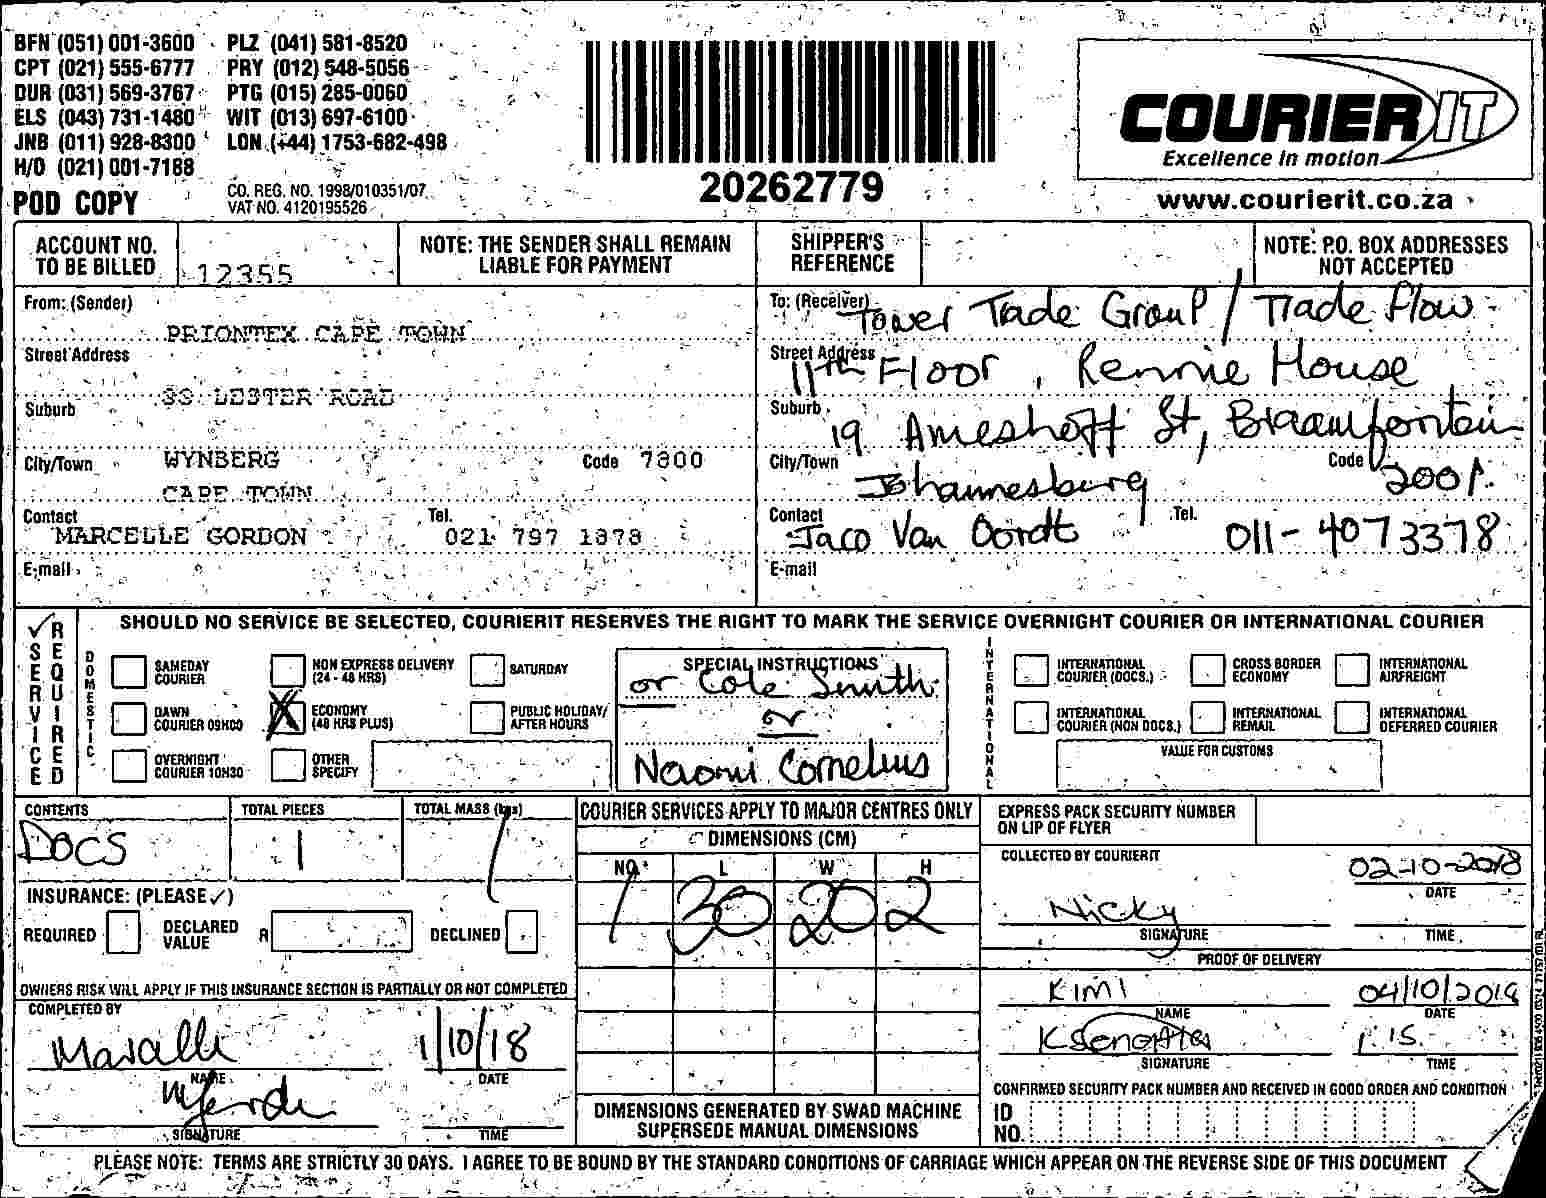 BFN (051) 001-3600 PLZ (041) 581-8520
CPT (021) 555-6777 PRY (012) 548-5056
DUR (031) 569-3767 PTG (015) 285-0060
ELS (043) 731-1480 WIT (013) 697-6100
JNB (011) 928-8300 LON (+44) 1753-682-498
H/O (021) 001-7188
POD COPY
CO. REG. NO. 1998/010351/07
VAT NO. 4120195526
20262779
COURIER IT
Excellence in motion
www.courierit.co.za
ACCOUNT NO. TO BE BILLED 12355
NOTE: THE SENDER SHALL REMAIN LIABLE FOR PAYMENT
SHIPPER'S REFERENCE
NOTE: P.O. BOX ADDRESSES NOT ACCEPTED
From: (Sender)
PRIONTEX CAPE TOWN
Street Address
33 LESTER ROAD
Suburb
City/Town WYNBERG Code 7800
CAPE TOWN
Contact MARCELLE GORDON Tel. 021 797 1878
E-mail
To: (Receiver) Tower Trade Group / Trade Flow
Street Address 11th Floor, Rennie House
Suburb 19 Ameshoff St, Braamfontein
City/Town Johannesburg Code 2001
Contact Jaco Van Oordt Tel. 011-4073378
E-mail
SERVICE REQUIRED
SHOULD NO SERVICE BE SELECTED, COURIERIT RESERVES THE RIGHT TO MARK THE SERVICE OVERNIGHT COURIER OR INTERNATIONAL COURIER
DOMESTIC
SAMEDAY COURIER
NON EXPRESS DELIVERY (24 - 48 HRS)
SATURDAY
DAWN COURIER 09H00
ECONOMY (48 HRS PLUS)
PUBLIC HOLIDAY/ AFTER HOURS
OVERNIGHT COURIER 10H30
OTHER SPECIFY
SPECIAL INSTRUCTIONS
or Cole Smith
or
Naomi Cornelius
INTERNATIONAL
INTERNATIONAL COURIER (DOCS.)
CROSS BORDER ECONOMY
INTERNATIONAL AIRFREIGHT
INTERNATIONAL COURIER (NON DOCS.)
INTERNATIONAL REMAIL
INTERNATIONAL DEFERRED COURIER
VALUE FOR CUSTOMS
CONTENTS DOCS
TOTAL PIECES 1
TOTAL MASS (kgs) 1
INSURANCE: (PLEASE ✓)
REQUIRED DECLARED VALUE R DECLINED
OWNERS RISK WILL APPLY IF THIS INSURANCE SECTION IS PARTIALLY OR NOT COMPLETED
COMPLETED BY
1/10/18
NAME DATE
SIGNATURE TIME
COURIER SERVICES APPLY TO MAJOR CENTRES ONLY
DIMENSIONS (CM)
NO. L W H
1 30 20 2
DIMENSIONS GENERATED BY SWAD MACHINE SUPERSEDE MANUAL DIMENSIONS
EXPRESS PACK SECURITY NUMBER ON LIP OF FLYER
COLLECTED BY COURIERIT
02-10-2018
DATE
Nicky
SIGNATURE TIME
PROOF OF DELIVERY
KIMI 04/10/2018
NAME DATE
1:15
SIGNATURE TIME
CONFIRMED SECURITY PACK NUMBER AND RECEIVED IN GOOD ORDER AND CONDITION
ID NO.
PLEASE NOTE: TERMS ARE STRICTLY 30 DAYS. I AGREE TO BE BOUND BY THE STANDARD CONDITIONS OF CARRIAGE WHICH APPEAR ON THE REVERSE SIDE OF THIS DOCUMENT